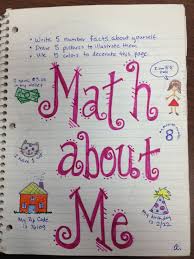 • Write 5 number facts about yourself
• Draw 5 pictures to illustrate them
• Use 5 colors to decorate this page
Math
about
Me
I have
in my
I have
My Zip Code
is
My birthday
is 2/22
8